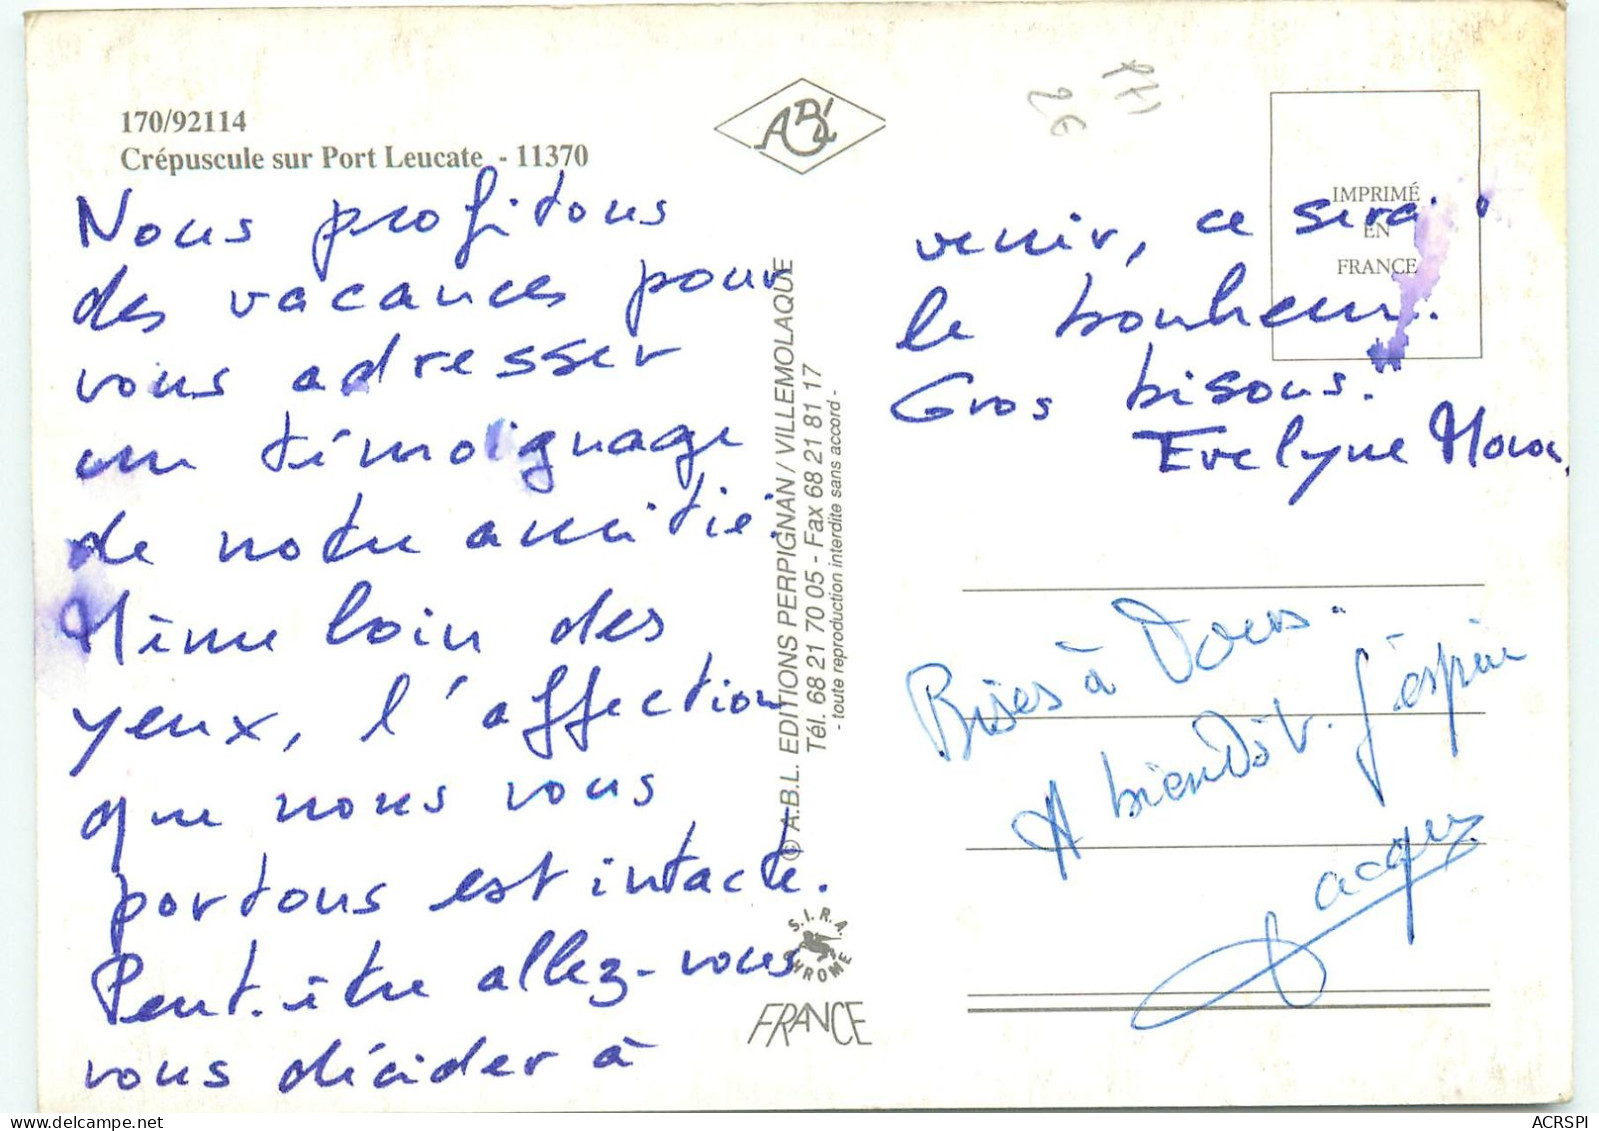 170/92114
Crépuscule sur Port Leucate - 11370
Nous profitons
des vacances pour
vous adresser
un témoignage
de notre amitié.
Même loin des
yeux, l'affection
que nous vous
portons est intacte.
Peut-être allez-vous
vous décider à
ABL
© A.B.L. EDITIONS PERPIGNAN / VILLEMOLAQUE
Tél. 68 21 70 05 - Fax 68 21 81 17
- toute reproduction interdite sans accord -
S.I.R.A
CHROME
FRANCE
2€
IMPRIMÉ
EN
FRANCE
venir, ce serait
le bonheur.
Gros bisous.
Evelyne
Bises à Vous.
A bientôt. J'espère
Jacques
ACRSPI